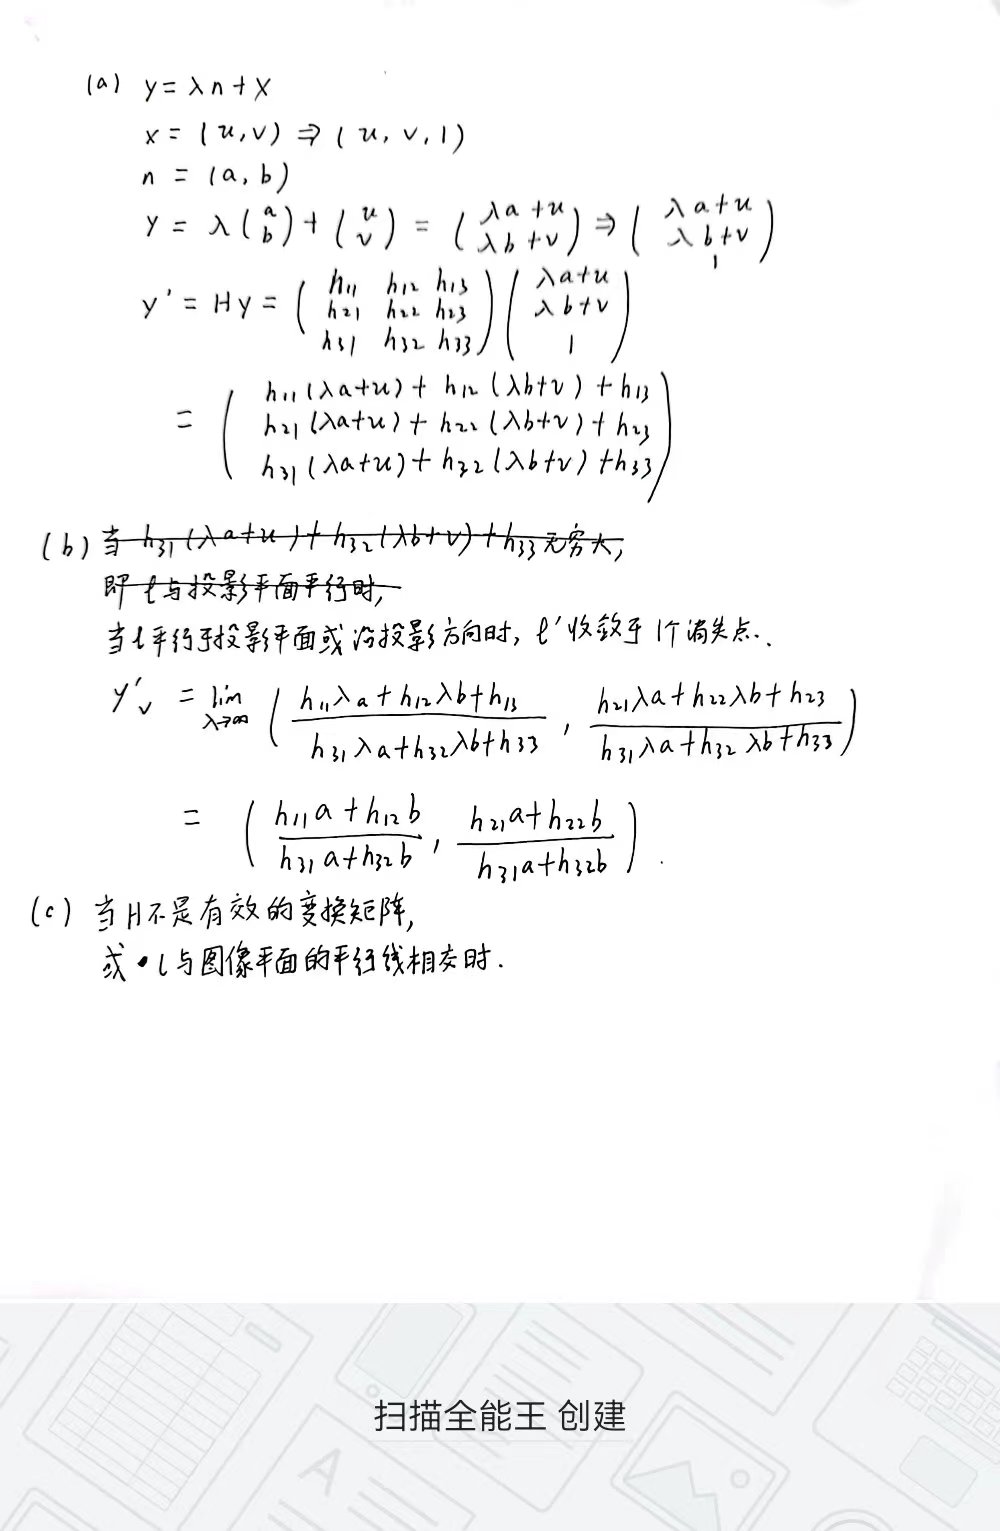 (a) y = λn + x
x = (u,v) ⇒ (u, v, 1)
n = (a, b)
y = λ(a b) + (u v) = (λa+u λb+v) ⇒ (λa+u λb+v 1)
y' = Hy = (h11 h12 h13 h21 h22 h23 h31 h32 h33)(λa+u λb+v 1)
= (h11(λa+u) + h12(λb+v) + h13
h21(λa+u) + h22(λb+v) + h23
h31(λa+u) + h32(λb+v) + h33)
(b) 当 h31(λa+u) + h32(λb+v) + h33 无穷大,
即 l 与投影平面平行时,
当l平行于投影平面或沿投影方向时, l'收敛于1个消失点.
y'v = lim λ→∞ ((h11λa+h12λb+h13)/(h31λa+h32λb+h33), (h21λa+h22λb+h23)/(h31λa+h32λb+h33))
= ((h11a+h12b)/(h31a+h32b), (h21a+h22b)/(h31a+h32b)).
(c) 当H不是有效的变换矩阵,
或•l与图像平面的平行线相交时.
扫描全能王 创建